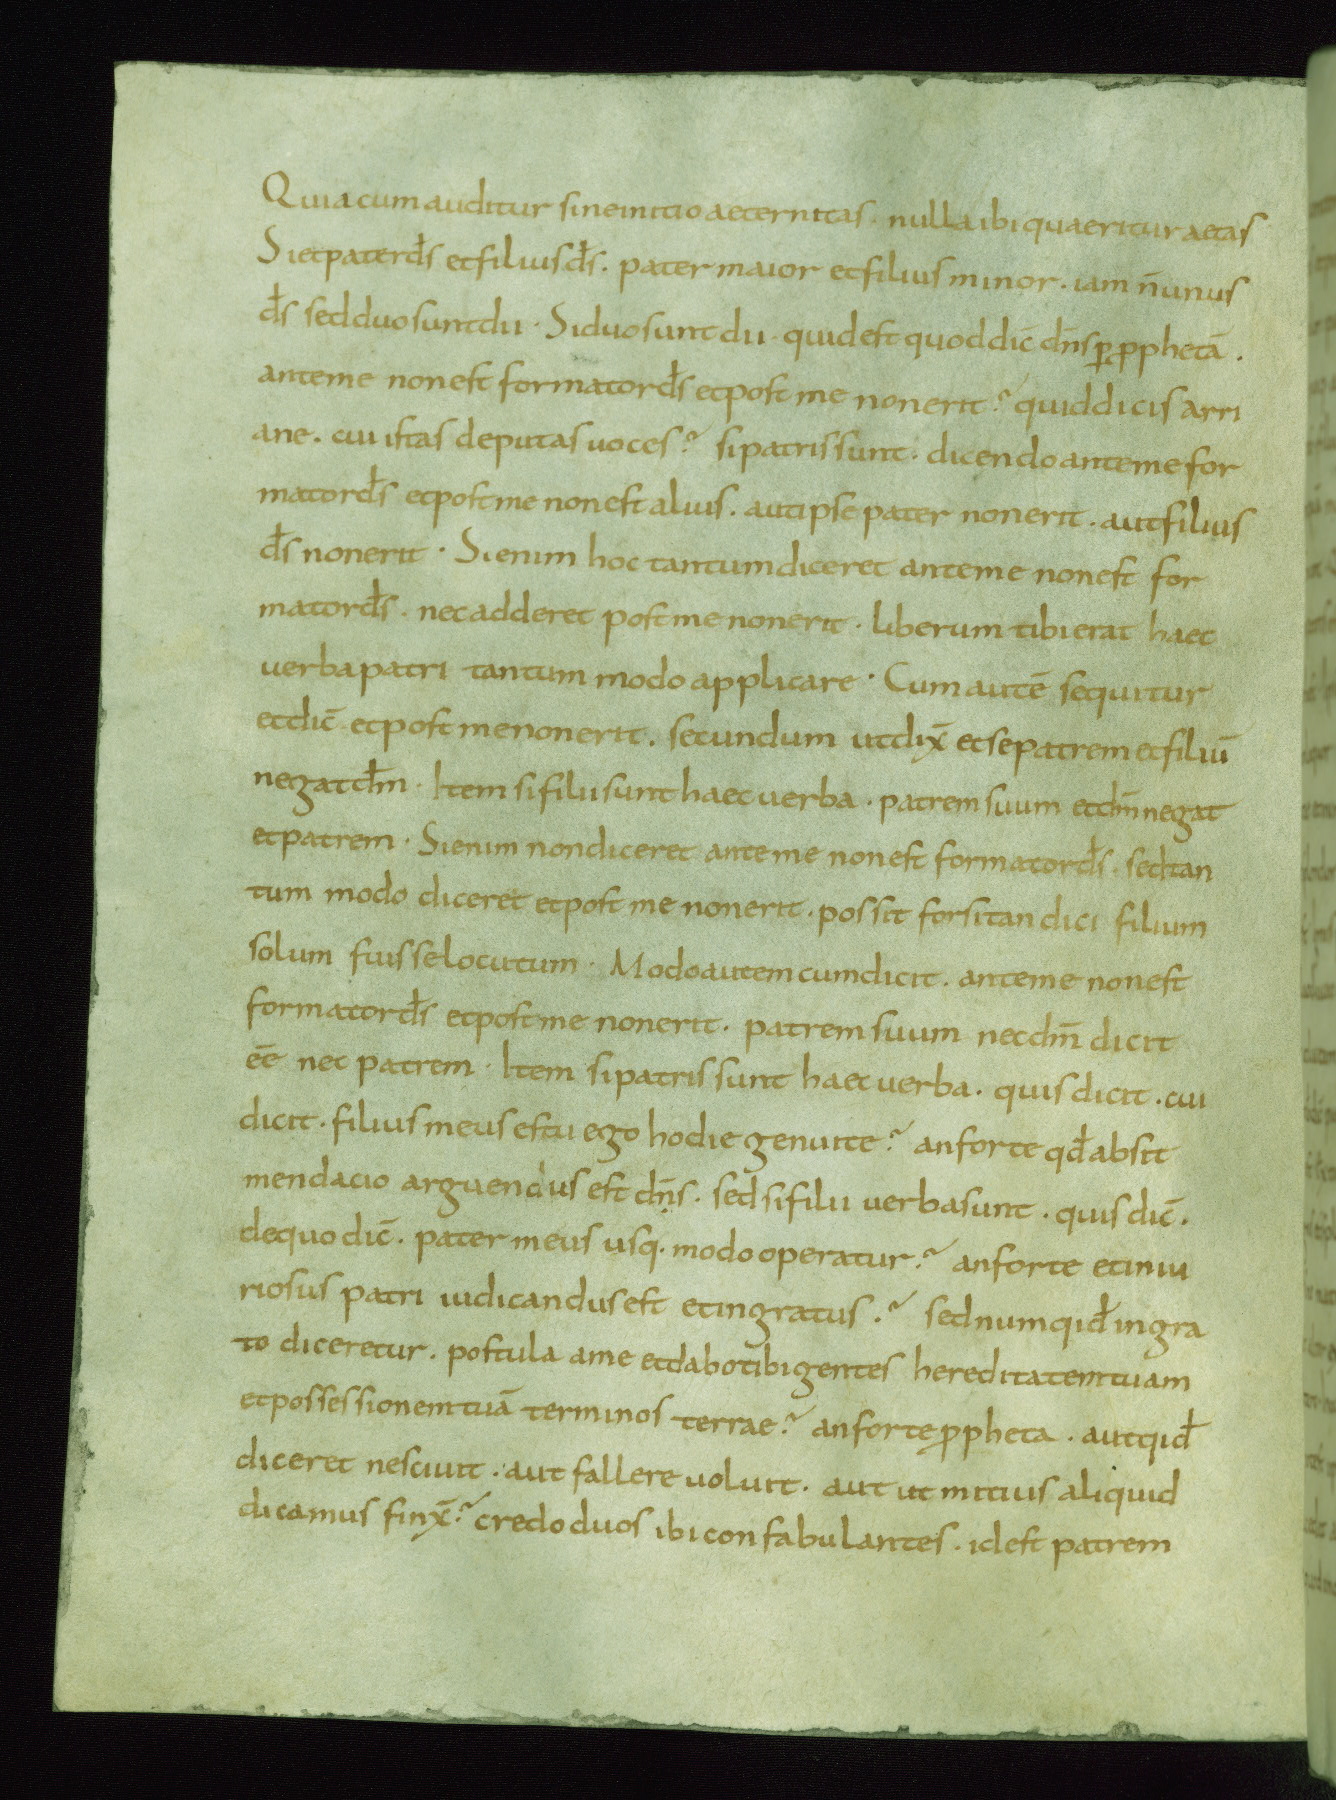 Quia cum auditur sine initio aeternitas · nulla ibi quaeritur aetas
Si et pater d̄s et filius d̄s · pater maior et filius minor · iam n̄ unus
d̄s sed duo sunt dii · Si duo sunt dii · quid est quod dic̄ dn̄s ꝑ ꝓphetā ·
ante me non est formator d̄s et post me non erit ·̉ quid dicis arri
ane · cui istas deputas uoces ·̉ si patris sunt · dicendo ante me for
mator d̄s et post me non est alius · aut ipse pater non erit · aut filius
d̄s non erit · Si enim hoc tantum diceret ante me non est for
mator d̄s · nec adderet post me non erit · liberum tibi erat haec
uerba patri tantum modo applicare · Cum autē sequitur
et dic̄ et post me non erit · secundum ut dix̄ et se patrem et filiū
negat dm̄ · Item si filii sunt haec uerba · patrem suum et dm̄ negat
et patrem · Si enim non diceret ante me non est formator d̄s · sed tan
tum modo diceret et post me non erit · possit forsitan dici filium
solum fuisse locutum · Modo autem cum dicit · ante me non est
formator d̄s et post me non erit · patrem suum nec dm̄ dicit
ēē nec patrem · Item si patris sunt haec uerba · quis dicit · cui
dicit · filius meus es tu ego hodie genui te ·̉ an forte qd̄ absit
mendacio arguendus est dn̄s · sed si filii uerba sunt · quis dic̄ ·
de quo dic̄ · pater meus usq · modo operatur ·̉ an forte et iniu
riosus patri iudicandus est et ingratus ·̉ sed numqid̄ ingra
to diceretur · postula a me et dabo tibi gentes hereditatem tuam
et possessionem tuā terminos terrae ·̉ an forte ꝓpheta · aut qid̄
diceret nesciuit · aut fallere uoluit · aut ut mitius aliquid
dicamus finx̄ ·̉ credo duos ibi confabulantes · id est patrem